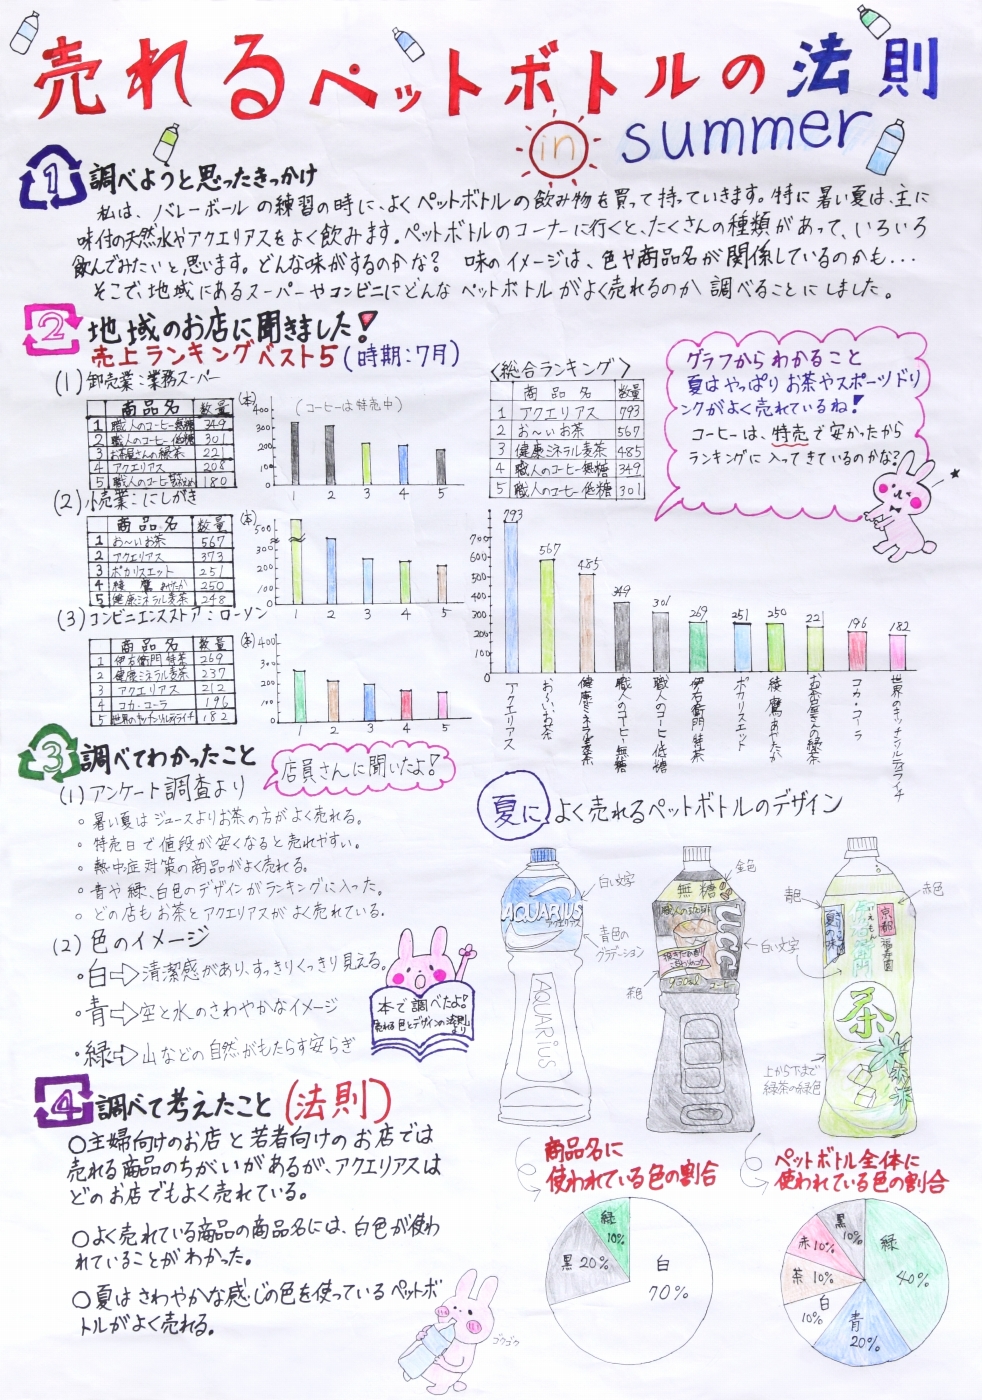 売れるペットボトルの法則
in summer
1 調べようと思ったきっかけ
私は、バレーボールの練習の時に、よくペットボトルの飲み物を買って持っていきます。特に暑い夏は、主に
味付の天然水やアクエリアスをよく飲みます。ペットボトルのコーナーに行くと、たくさんの種類があって、いろいろ
飲んでみたいと思います。どんな味がするのかな? 味のイメージは、色や商品名が関係しているのかも...
そこで、地域にあるスーパーやコンビニにどんなペットボトルがよく売れるのか調べることにしました。
2 地域のお店に聞きました!
売上ランキングベスト5(時期:7月)
(1)卸売業:業務スーパー
商品名 数量
1 職人のコーヒー無糖 349
2 職人のコーヒー低糖 301
3 お茶屋さんの緑茶 221
4 アクエリアス 208
5 180
(本)
(コーヒーは特売中)
400
300
200
100
0
1 2 3 4 5
(2)小売業:にしがき
商品名 数量
1 お〜いお茶 567
2 アクエリアス 373
3 ポカリスエット 251
4 綾鷹 あやたか 250
5 健康ミネラル麦茶 248
(本)
500
300
200
100
0
1 2 3 4 5
(3)コンビニエンスストア:ローソン
商品名 数量
1 伊右衛門 特茶 269
2 健康ミネラル麦茶 237
3 アクエリアス 212
4 コカ・コーラ 196
5 世界のキッチンソルティライチ 182
(本)
400
300
200
100
0
1 2 3 4 5
〈総合ランキング〉
商品名 数量
1 アクエリアス 793
2 お〜いお茶 567
3 健康ミネラル麦茶 485
4 職人のコーヒー無糖 349
5 職人のコーヒー低糖 301
グラフからわかること
夏はやっぱりお茶やスポーツドリ
ンクがよく売れているね!
コーヒーは、特売で安かったから
ランキングに入ってきているのかな?
700
600
500
400
300
200
100
0
793 567 485 349 301 269 251 250 221 196 182
アクエリアス
お〜いお茶
健康ミネラル麦茶
職人のコーヒー無糖
職人のコーヒー低糖
伊右衛門特茶
ポカリスエット
綾鷹あやたか
お茶屋さんの緑茶
コカ・コーラ
世界のキッチンソルティライチ
3 調べてわかったこと
店員さんに聞いたよ!
(1)アンケート調査より
。暑い夏はジュースよりお茶の方がよく売れる。
。特売日で値段が安くなると売れやすい。
。熱中症対策の商品がよく売れる。
。青や緑、白色のデザインがランキングに入った。
。どの店もお茶とアクエリアスがよく売れている。
(2)色のイメージ
・白⇨清潔感があり、すっきりくっきり見える。
・青⇨空と水のさわやかなイメージ
・緑⇨山などの自然がもたらす安らぎ
本で調べたよ!
売れる色とデザインの法則
より
夏によく売れるペットボトルのデザイン
白い文字
青色の
グラデーション
AQUARIUS
アクエリアス
AQUARIUS
金色
白い文字
茶色
無糖
職人の
UCC
コーヒー
青色
赤色
京都
福寿園
夏の味
茶
上から下まで
緑茶の緑色
4 調べて考えたこと(法則)
○主婦向けのお店と若者向けのお店では
売れる商品のちがいがあるが、アクエリアスは
どのお店でもよく売れている。
○よく売れている商品の商品名には、白色が使わ
れていることがわかった。
○夏はさわやかな感じの色を使っているペットボ
トルがよく売れる。
ゴクゴク
商品名に
使われている色の割合
緑 10%
黒 20%
白
70%
ペットボトル全体に
使われている色の割合
黒 10%
赤 10%
茶 10%
白 10%
青 20%
緑 40%